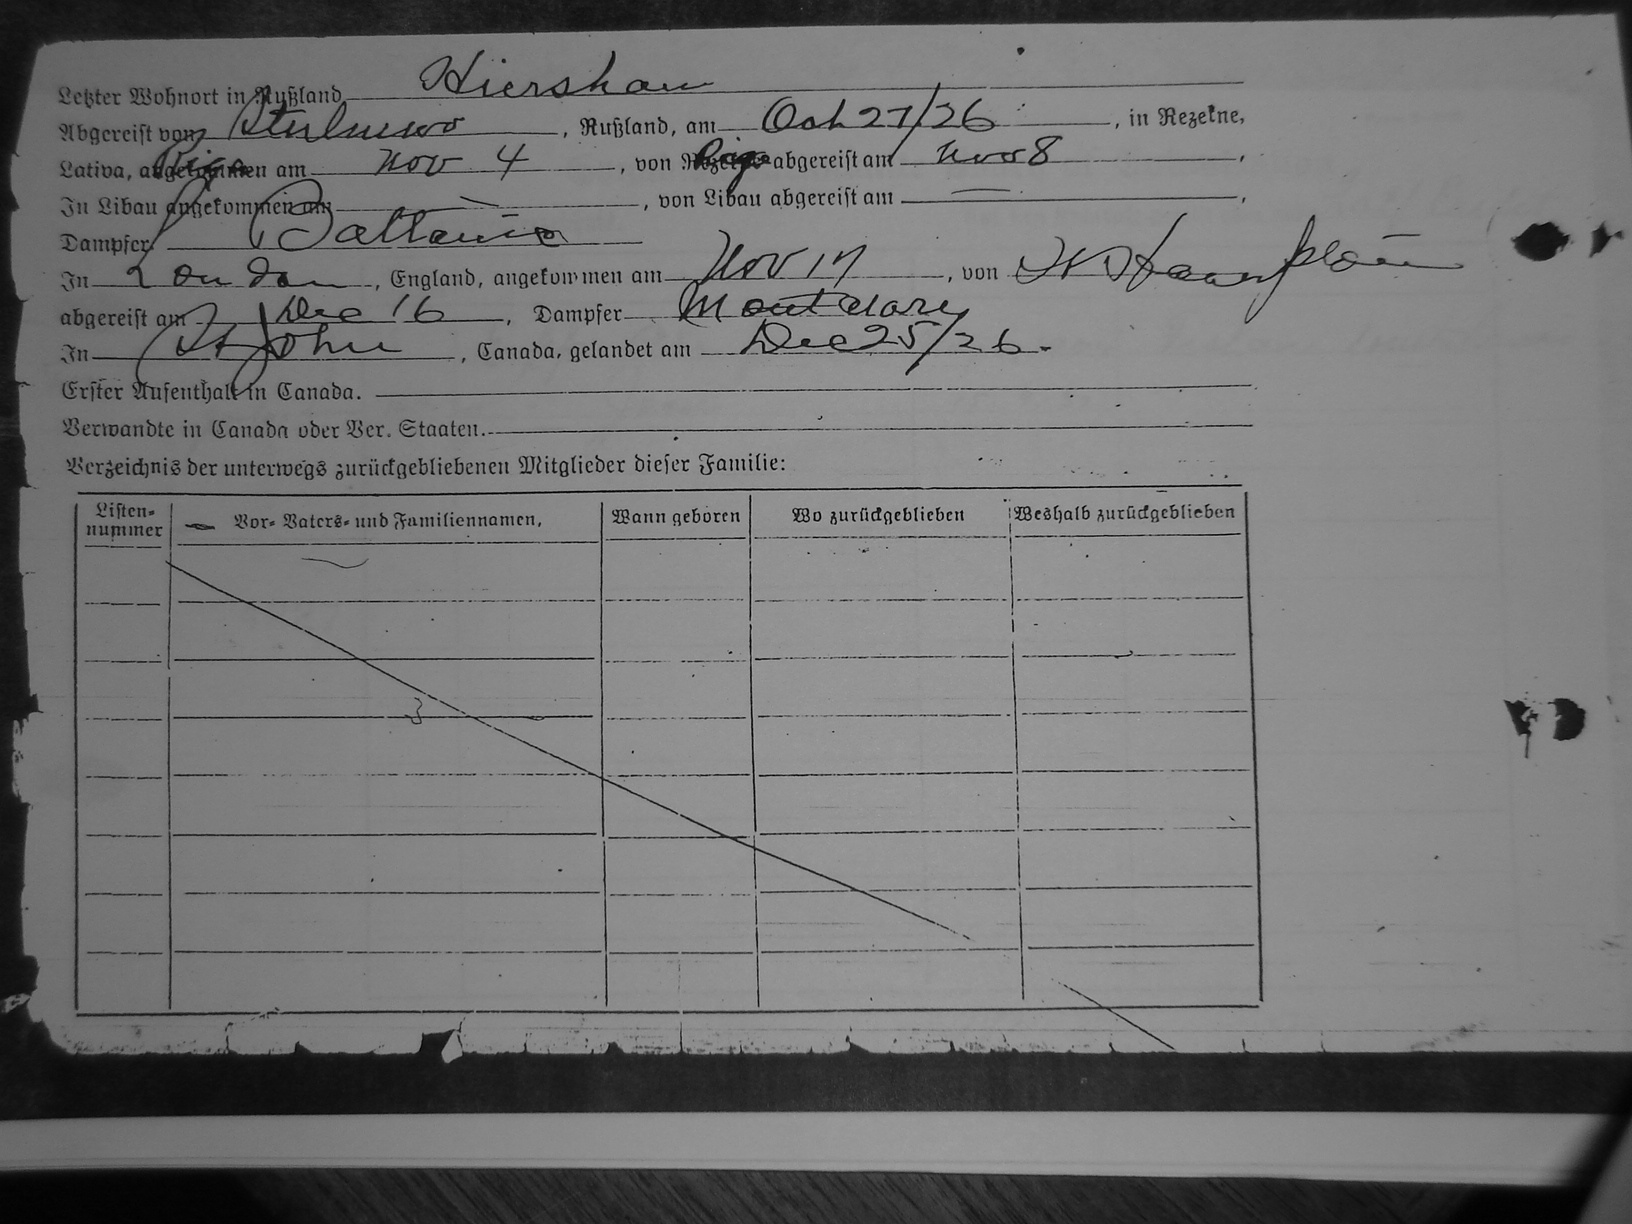 Letzter Wohnort in Rußland Hiershau
Abgereist von Sterlinewo, Rußland, am Oct 27/26, in Rezekne,
Lativa, angekommen am Nov 4, von Riga abgereist am Nov 8,
In Libau angekommen am —, von Libau abgereist am —,
Dampfer Baltannia
In London, England, angekommen am Nov 17, von
abgereist am Dec 16, Dampfer Montclare
In St John, Canada, gelandet am Dec 25/26.
Erster Aufenthalt in Canada.
Verwandte in Canada oder Ver. Staaten.
Verzeichnis der unterwegs zurückgebliebenen Mitglieder dieser Familie:
Listen-nummer Vor- Vaters- und Familiennamen, Wann geboren Wo zurückgeblieben Weshalb zurückgeblieben